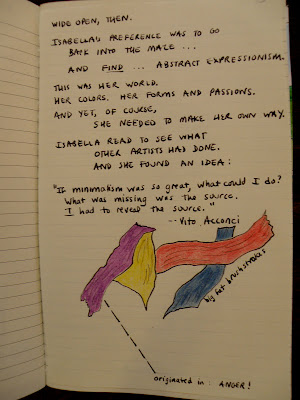 WIDE OPEN, THEN.
ISABELLA'S PREFERENCE WAS TO GO
BACK INTO THE MAZE ...
AND FIND ... ABSTRACT EXPRESSIONISM.
THIS WAS HER WORLD.
HER COLORS. HER FORMS AND PASSIONS.
AND YET, OF COURSE,
SHE NEEDED TO MAKE HER OWN WAY.
ISABELLA READ TO SEE WHAT
OTHER ARTISTS HAD DONE.
AND SHE FOUND AN IDEA:
"If minimalism was so great, what could I do?
What was missing was the source.
I had to reveal the source."
-- Vito Acconci
big fat brushstrokes
originated in: ANGER!